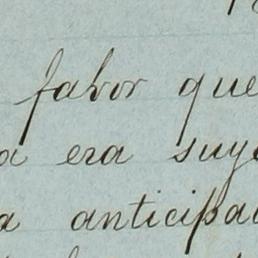 favor que
a era suya
a anticipad